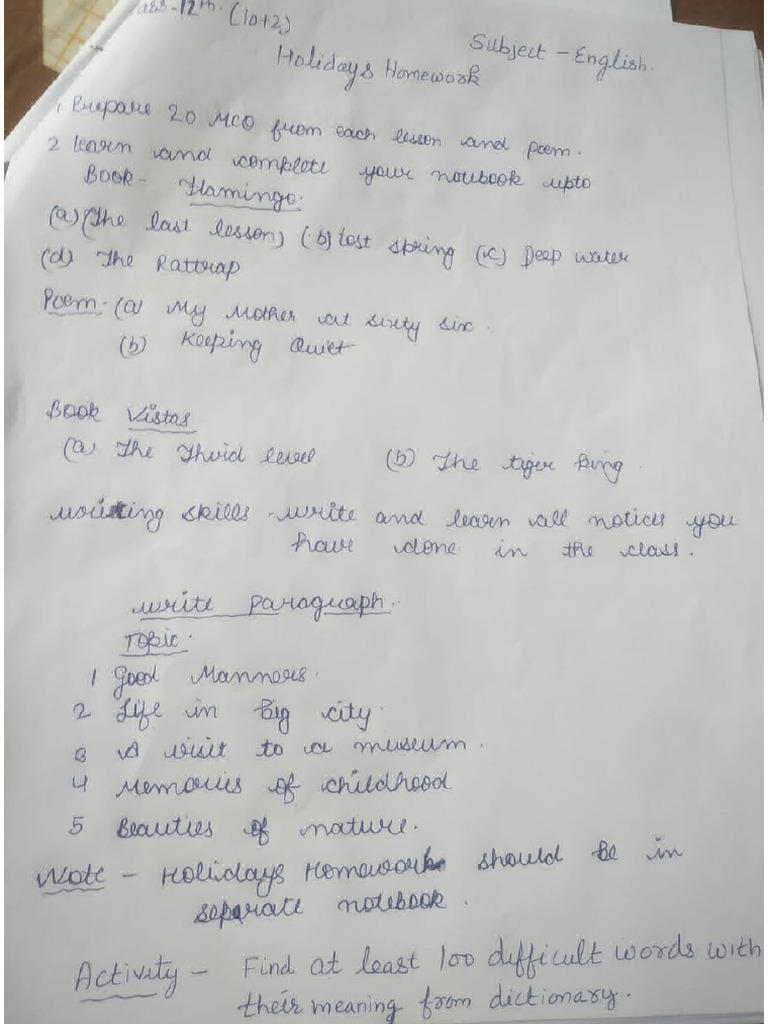 ass-12th. (10+2)
Subject - English.
Holidays Homework
1, Prepare 20 MCQ from each lesson and poem.
2 learn and complete your notebook upto
Book- Flamingo.
(a) (The last lesson) (b) lost spring (c) Deep water
(d) The Rattrap
Poem- (a) My Mother at sixty six.
(b) Keeping Quiet
Book Vistas
(a) The Thrid level (b) The tiger king.
writing skills - write and learn all notices you
have done in the class.
write paragraph.
Topic.
1 Good Manners.
2 Life in big city.
3 A visit to a museum.
4 Memories of childhood
5 Beauties of nature.
Note - Holidays Homework should be in
separate notebook.
Activity - Find at least 100 difficult words with
their meaning from dictionary.